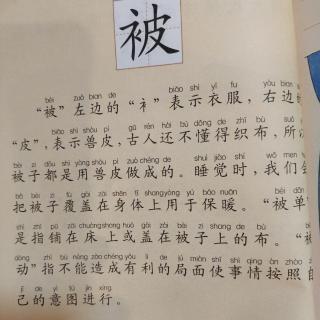 被
bèi zuǒ bian de biǎo shì yī fu yòu biān
“被”左边的“衤”表示衣服，右边
biǎo shì shòu pí gǔ rén hái bù dǒng de zhī bù suǒ
“皮”，表示兽皮，古人还不懂得织布，所
bèi zi dōu shì yòng shòu pí zuò chéng de shuì jiào shí wǒ men
被子都是用兽皮做成的。睡觉时，我们
bǎ bèi zi fù gài zài shēn tǐ shang yòng yú bǎo nuǎn bèi dān
把被子覆盖在身体上用于保暖。“被单
shì zhǐ pū zài chuáng shang huò gài zài bèi zi shang de bù
是指铺在床上或盖在被子上的布。“被
dòng zhǐ bù néng zào chéng yǒu lì de jú miàn shǐ shì qing àn zhào
动”指不能造成有利的局面使事情按照
jǐ de yì tú jìn xíng
己的意图进行。